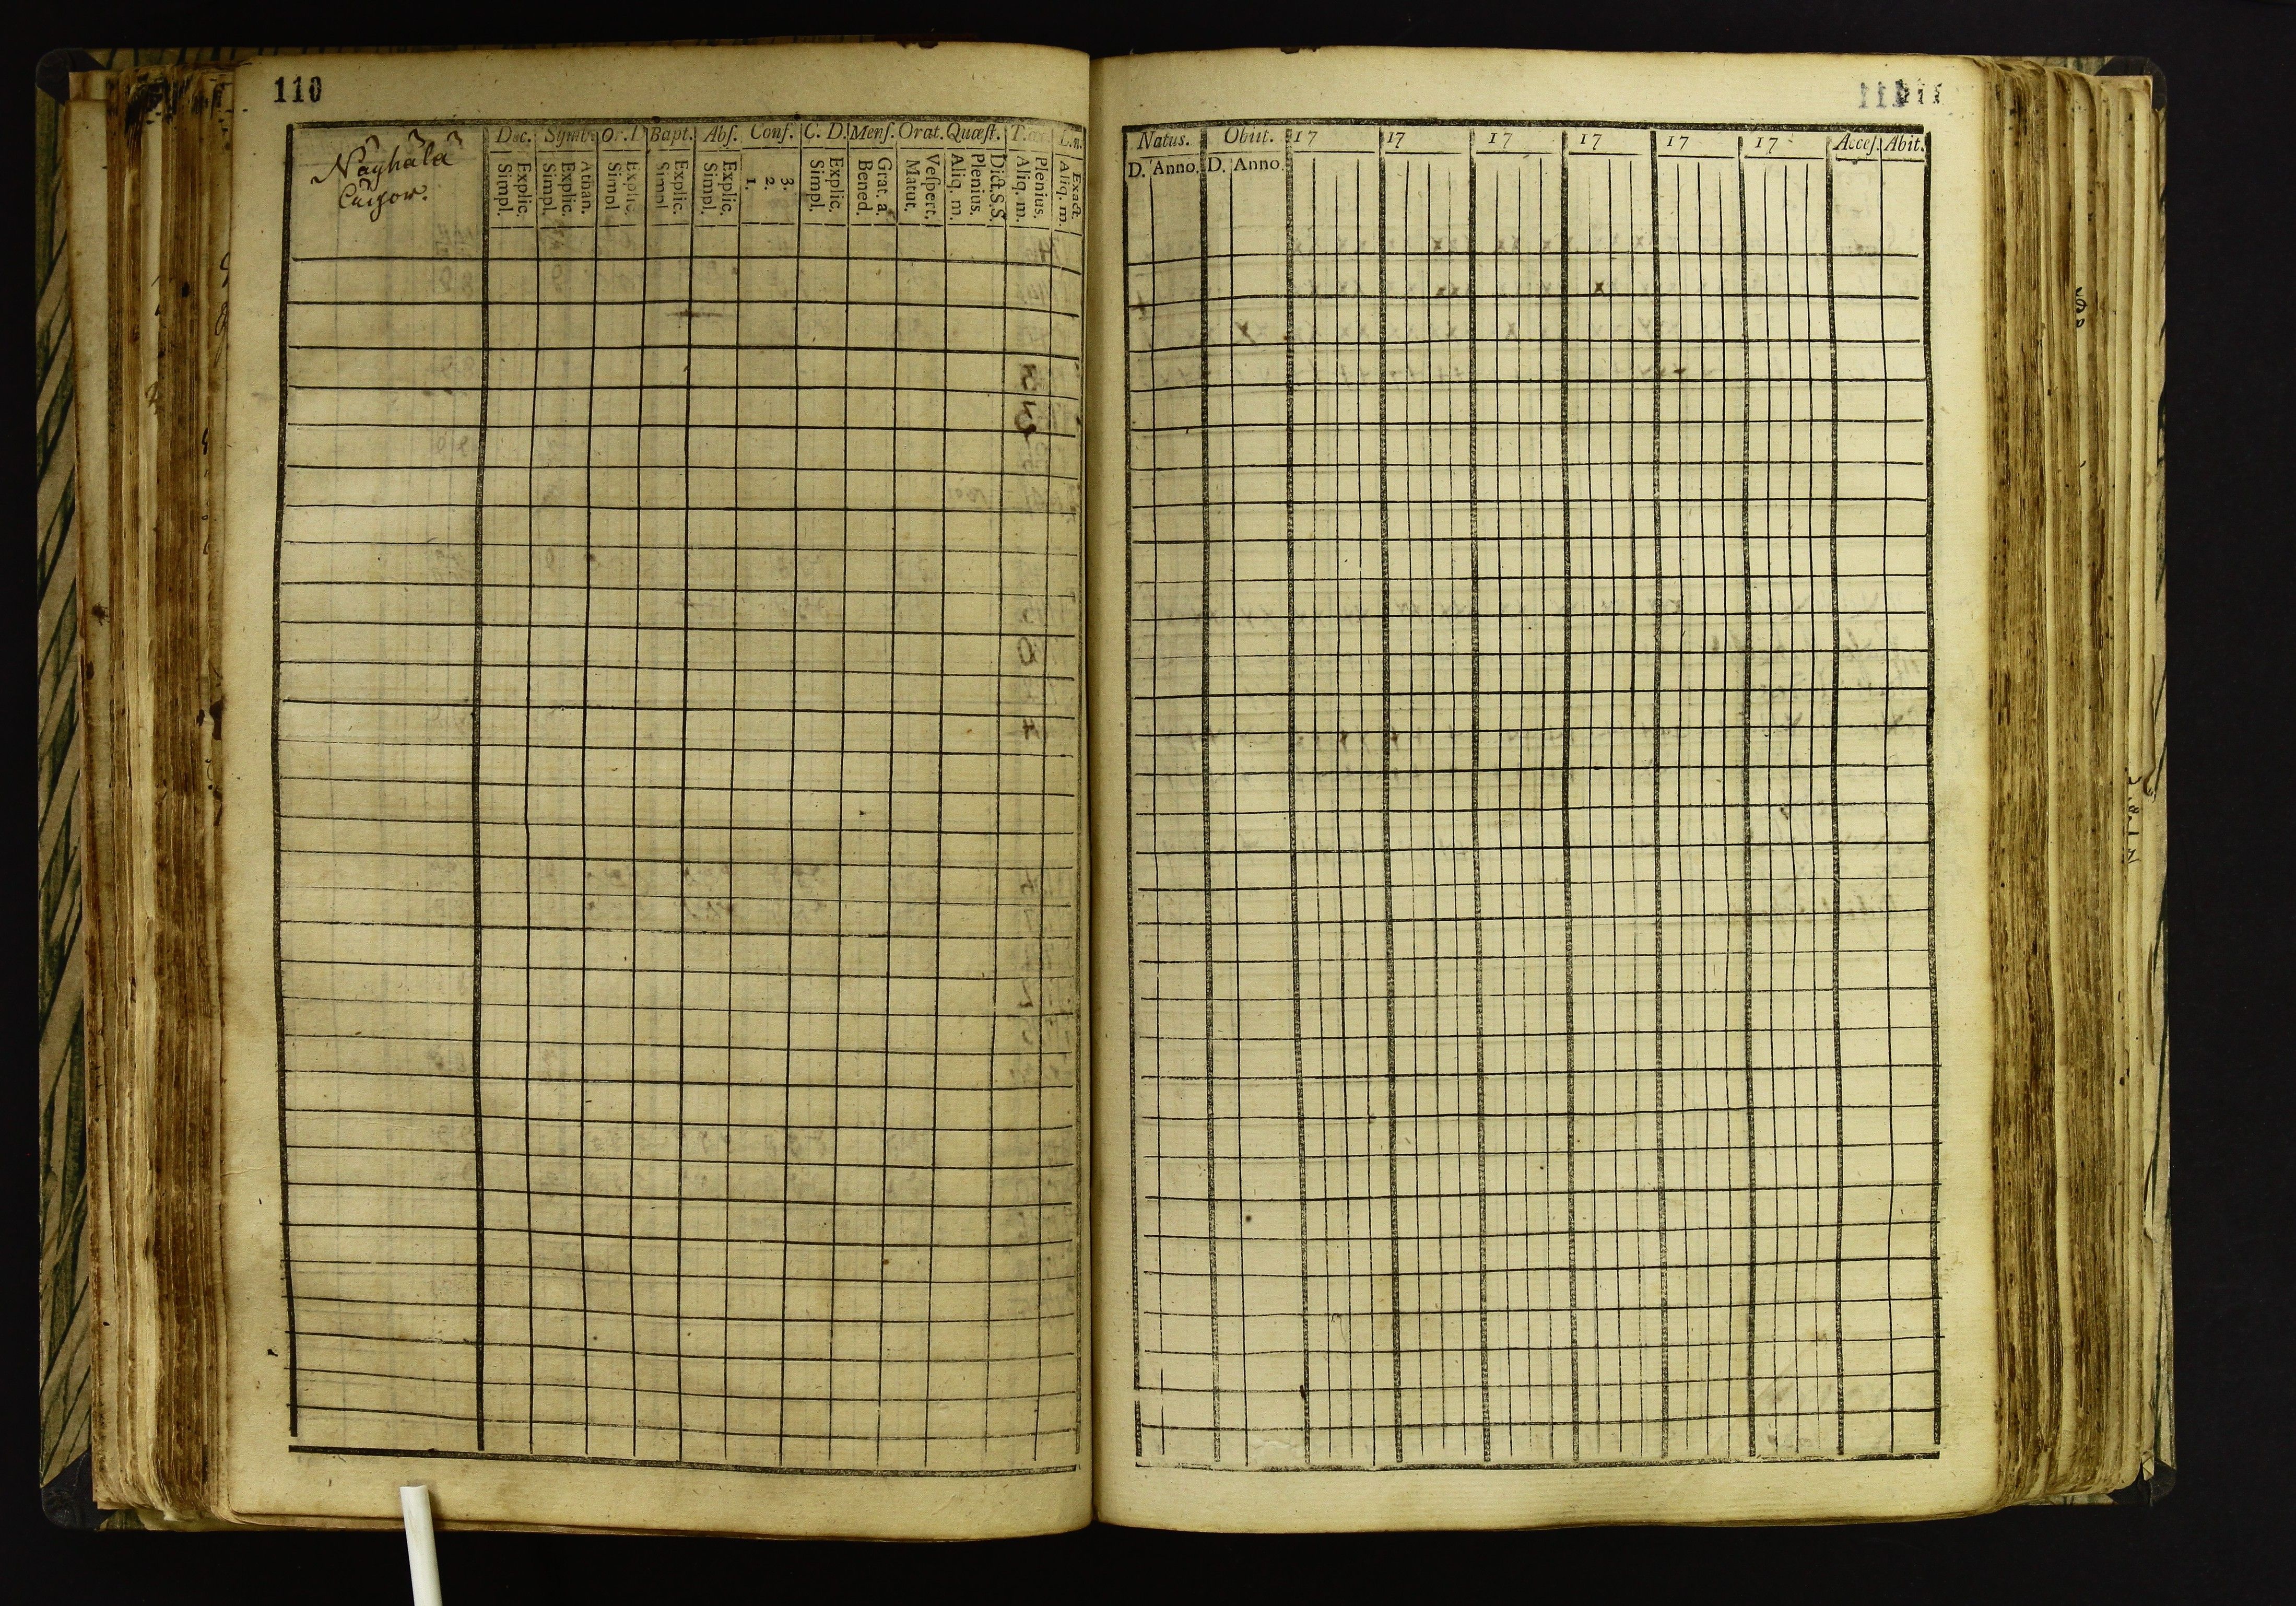 110
Näÿhälä
Dec. Symb. Or. D Bapt. Abſ. Conf. C. D. Menſ. Orat. Quæſt.
Simpl. Explic. Simpl. Explic. Athan. Simpl Explic. Simpl Explic. Simpl. Explic. 1. 2. 3. Simpl. Explic. Bened. Grat. a. Matut. Veſpert. Aliq. m. Plenius. Dict. S. S. Aliq. m. Plenius. Aliq. m. Exact.
111
Natus. Obiit. 17 17 17 17 17 17 Acceſ. Abit.
D. Anno. D. Anno.